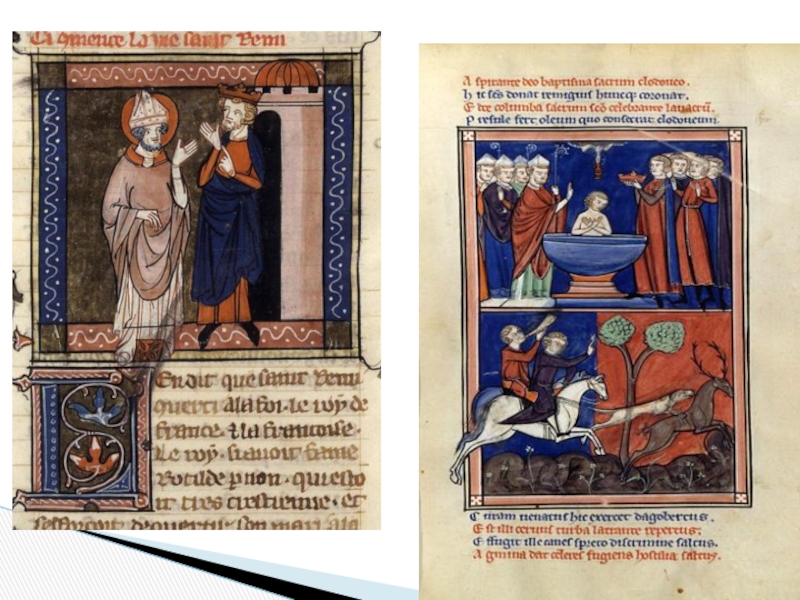 Ci qmence la vie saint Remi
En dit que saint Remi
querti a la foi le roy de
france & la francoise
Le roy si auoit fame
Rotilde p non que
it tres crestienne et
son mari a la
A spirante deo baptisma sacrum clodoueo.
H ic scs donat remigius huncq coronat.
E cce columba sacrum sco celebrante lauacru.
P resule fert oleum quo consecrat clodoueum.
C uram uenatus hic exercet dagobertus.
E st illi ceruus turba latrante repertus.
E ffugit ille canes spreto discrimine saltus.
A gmina dat celeres fugiens hostilia saltus.